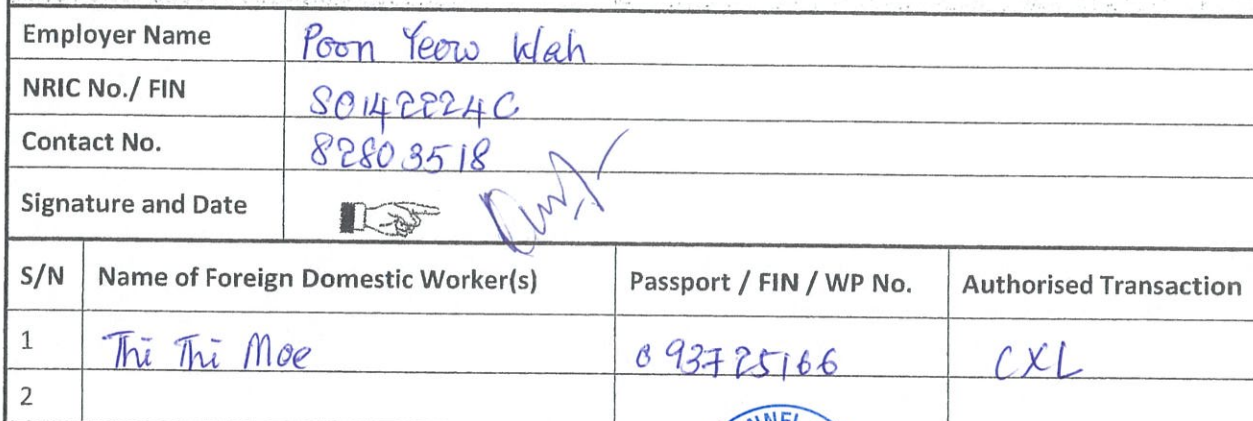 Employer Name Poon Yeow Wah
NRIC No./ FIN S0142224C
Contact No. 82803518
Signature and Date
S/N Name of Foreign Domestic Worker(s) Passport / FIN / WP No. Authorised Transaction
1 Thi Thi Moe 0 93725166 CXL
2